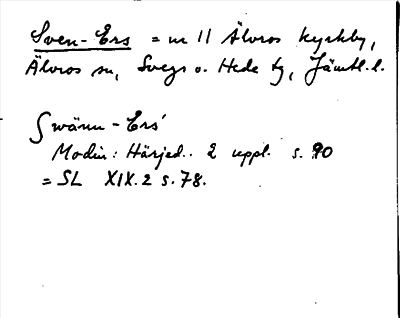 Sven-Ers = nr 11 Älvros kyrkby,
Älvros sn, Svegs o. Hede tg, Jämtl. l.
Swänn-Ers'
Modin: Härjed.. 2 uppl. s. 90
= SL XIX.2 s. 78.